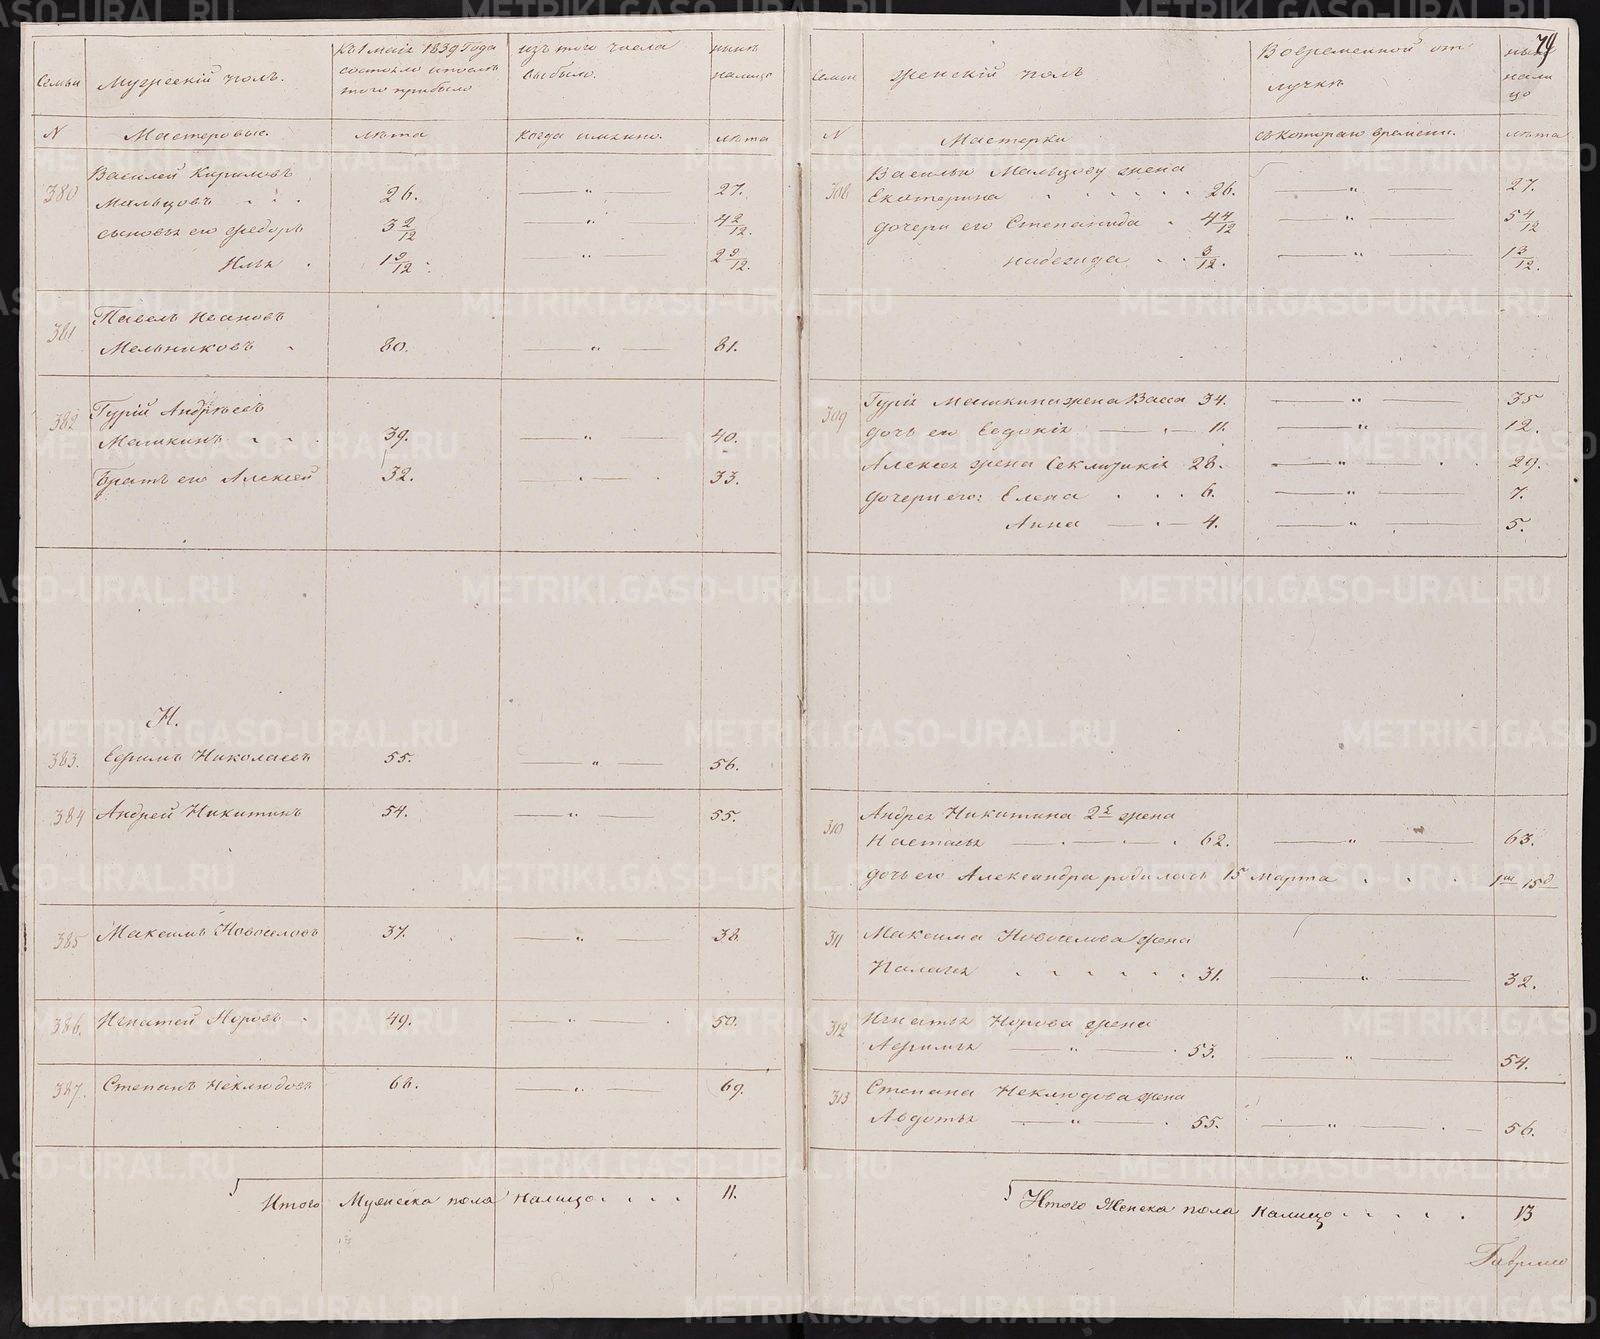 Семьи
Мужескій полъ.
Къ 1 маія 1839 года
состояло и послѣ
того прибыло
изъ того числа
выбыло.
нынѣ
налицо
N
Мастеровые.
лѣта
когда имянно.
лѣта
380
Василей Кириловъ
Мальцовъ
26.
— " —
27.
сыновья его Федоръ
3 2/12
— " —
4 2/12.
Илья
1 9/12.
— " —
2 9/12.
381
Павелъ Ивановъ
Мельниковъ
80.
— " —
81.
382
Гурій Андрѣевъ
Машкинъ
39.
— " —
40.
Братъ его Алексей
32.
33.
Н.
383.
Ефимъ Николаевъ
55.
— " —
56.
384
Андрей Никитинъ
54.
— " —
55.
385
Максимъ Новоселовъ
37.
— " —
38.
386.
Игнатей Норовъ
49.
— " —
50.
387.
Степанъ Неклюдовъ
68.
69.
Итого Мужеска пола налицо . . . . 11.
79
Семьи
Женскій полъ
Во временной от
лучкѣ
нынѣ
нали
цо
N
Мастерки
съ котораго времени.
лѣта
308
Василья Мальцову жена
Екатерина . . . . . . 26.
— " —
27.
дочери его Степанида . 4 4/12
— " —
5 4/12
надежда . . 3/12.
— " —
1 3/12.
309
Гурія Машкина жена Васса 34.
— " —
35
дочь его Евдокія — " — 11.
— " —
12.
Алексея жена Секлитикія 28.
— " —
29.
дочери его: Елена . . . 6.
— " —
7.
Анна — " — 4.
— " —
5.
310
Андрея Никитина 2я жена
Настасья 62.
— " —
63.
дочь его Александра родилась 15 марта . . . 1м 15д
311
Максима Новоселова жена
Палагея . . . . . . 31.
— " —
32.
312
Игнатья Норова жена
Афимья — " — 53.
— " —
54.
313
Степана Неклюдова жена
Авдотья — " — 55.
— " —
56.
Итого Женска пола налицо . . . . . 13
Гаврило
METRIKI.GASO-URAL.RU